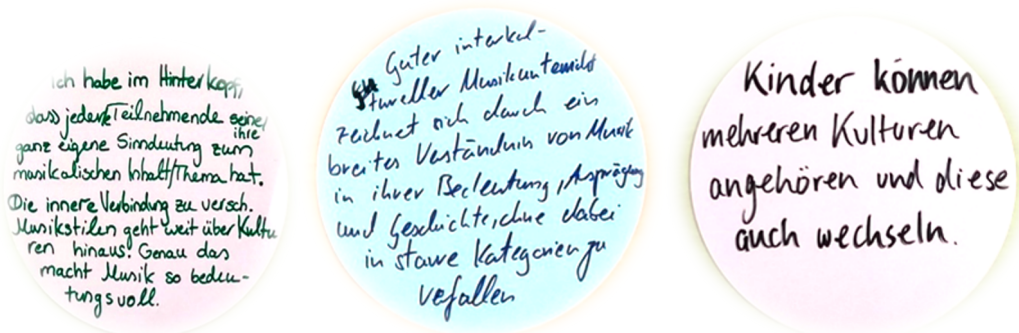 Ich habe im Hinterkopf,
dass jede/r Teilnehmende seine/
ihre
ganz eigene Sinndeutung zum
musikalischen Inhalt/Thema hat.
Die innere Verbindung zu versch.
Musikstilen geht weit über Kultu
ren hinaus! Genau das
macht Musik so bedeu-
tungsvoll.
Guter interkul-
tureller Musikunterricht
zeichnet sich durch ein
breites Verständnis von Musik
in ihrer Bedeutung, Ausprägung
und Geschichte, ohne dabei
in starre Kategorien zu
vefallen
Kinder können
mehreren Kulturen
angehören und diese
auch wechseln.